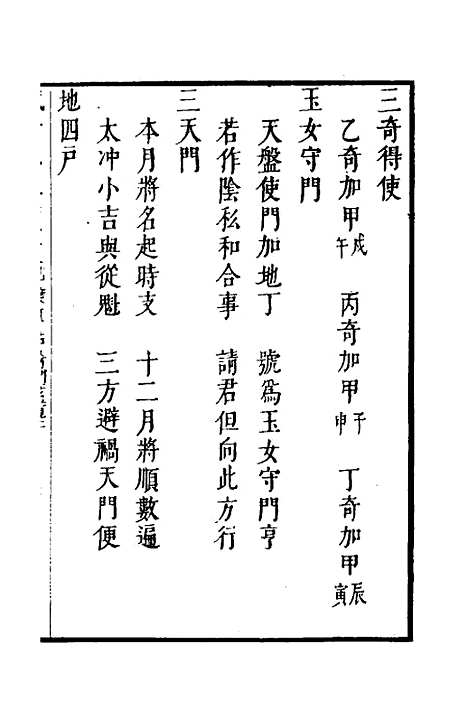 三奇得使
乙奇加甲戌午　丙奇加甲子申　丁奇加甲辰寅
玉女守門
天盤使門加地丁　號爲玉女守門亨
若作陰私和合事　請君但向此方行
三天門
本月將名起時支　十二月將順數遍
太冲小吉與從魁　三方避禍天門便
地四戸